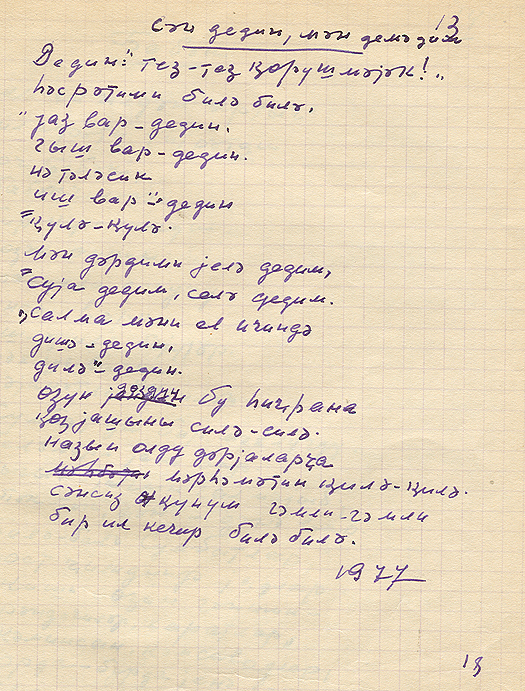 13
Сән дедин, мән демәдим
Дедин: "тез-тез ҝөрүшмәјәк!"..
һәсрәтими билә билә,
"јаз вар - дедин.
гыш вар - дедин.
нә тәләсик
иш вар" - дедин
ҝүлә-ҝүлә.
Мән дәрдими јелә дедим,
Суја дедим, селә дедим.
"Салма мәни ел ичиндә
дишә - дедин,
дилә" - дедин.
өзүн дөздүн бу һиҹрана
ҝөзјашыны силә-силә.
назын олду дәрјаларҹа
мәрһәмәтин ҝилә-ҝилә.
сәнсиз ҝүнүм гәмли-гәмли
бир ил кечир билә билә.
1977
13